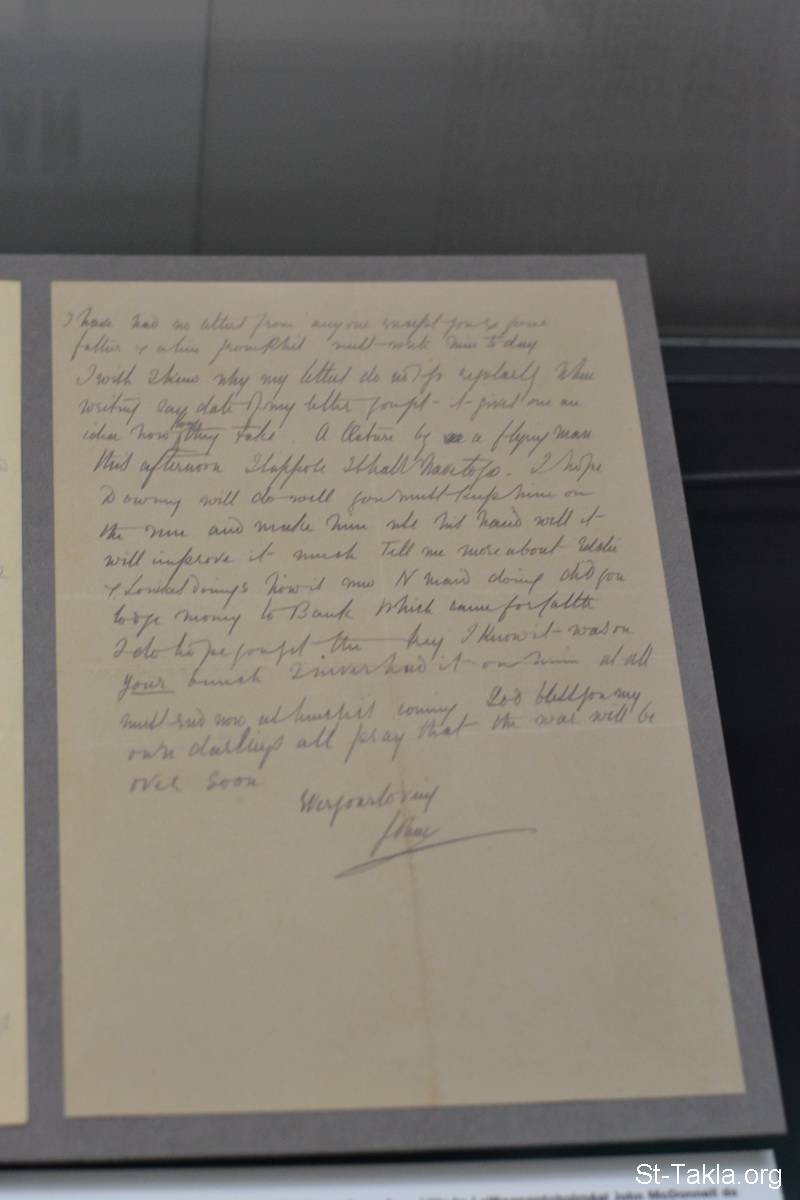 I have had no letters from anyone except you & your
father & a line from Phil must write him to day
I wish I knew why my letters do not go regularly When
writing say date of my letter you get - it gives one an
idea how long they take. A lecture by a flying man
this afternoon I suppose I shall have to go. I hope
Downey will do well you must keep him on
the and make him use his hand well it
will improve it much Tell me more about Eddie
& doings how is N maid doing did you
lodge money to Bank which came for
I do hope you get the key I know it was on
your bunch I never had it on mine at all
must end now as coming God bless you my
own darlings all pray that the war will be
over soon
Ever your loving
St-Takla.org